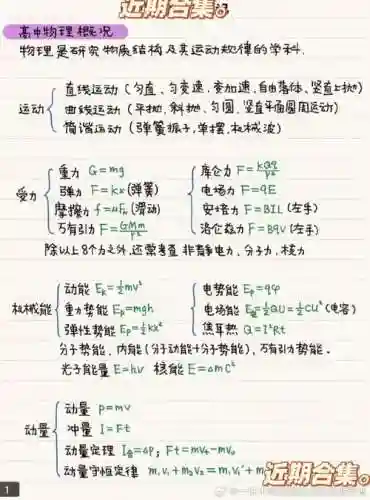 近期合集。
高中物理概况
物理是研究物质结构及其运动规律的学科.
运动
直线运动 (匀直、匀变速、变加速、自由落体、竖直上抛)
曲线运动 (平抛、斜抛、匀圆、竖直平面圆周运动)
简谐运动 (弹簧振子,单摆,机械波)
受力
重力 G=mg
弹力 F=kx (弹簧)
摩擦力 f=μFN (滑动)
万有引力 F=GMm/r²
库仑力 F=kQq/r²
电场力 F=qE
安培力 F=BIL (左手)
洛仑兹力 F=Bqv (左手)
除以上8个力之外,还常考查 非静电力、分子力、核力
机械能
动能 Ek=½mv²
重力势能 Ep=mgh
弹性势能 Ep=½kx²
电势能 Ep=qφ
电场能 E电=½QU=½CU² (电容)
焦耳热 Q=I²Rt
分子势能、内能(分子动能+分子势能)、万有引力势能.
光子能量 E=hν 核能 E=Δmc²
动量
动量 p=mv
冲量 I=Ft
动量定理 I合=Δp; Ft=mvt-mv0
动量守恒定律 m₁v₁+m₂v₂=m₁v₁'+m
近期合集。
1